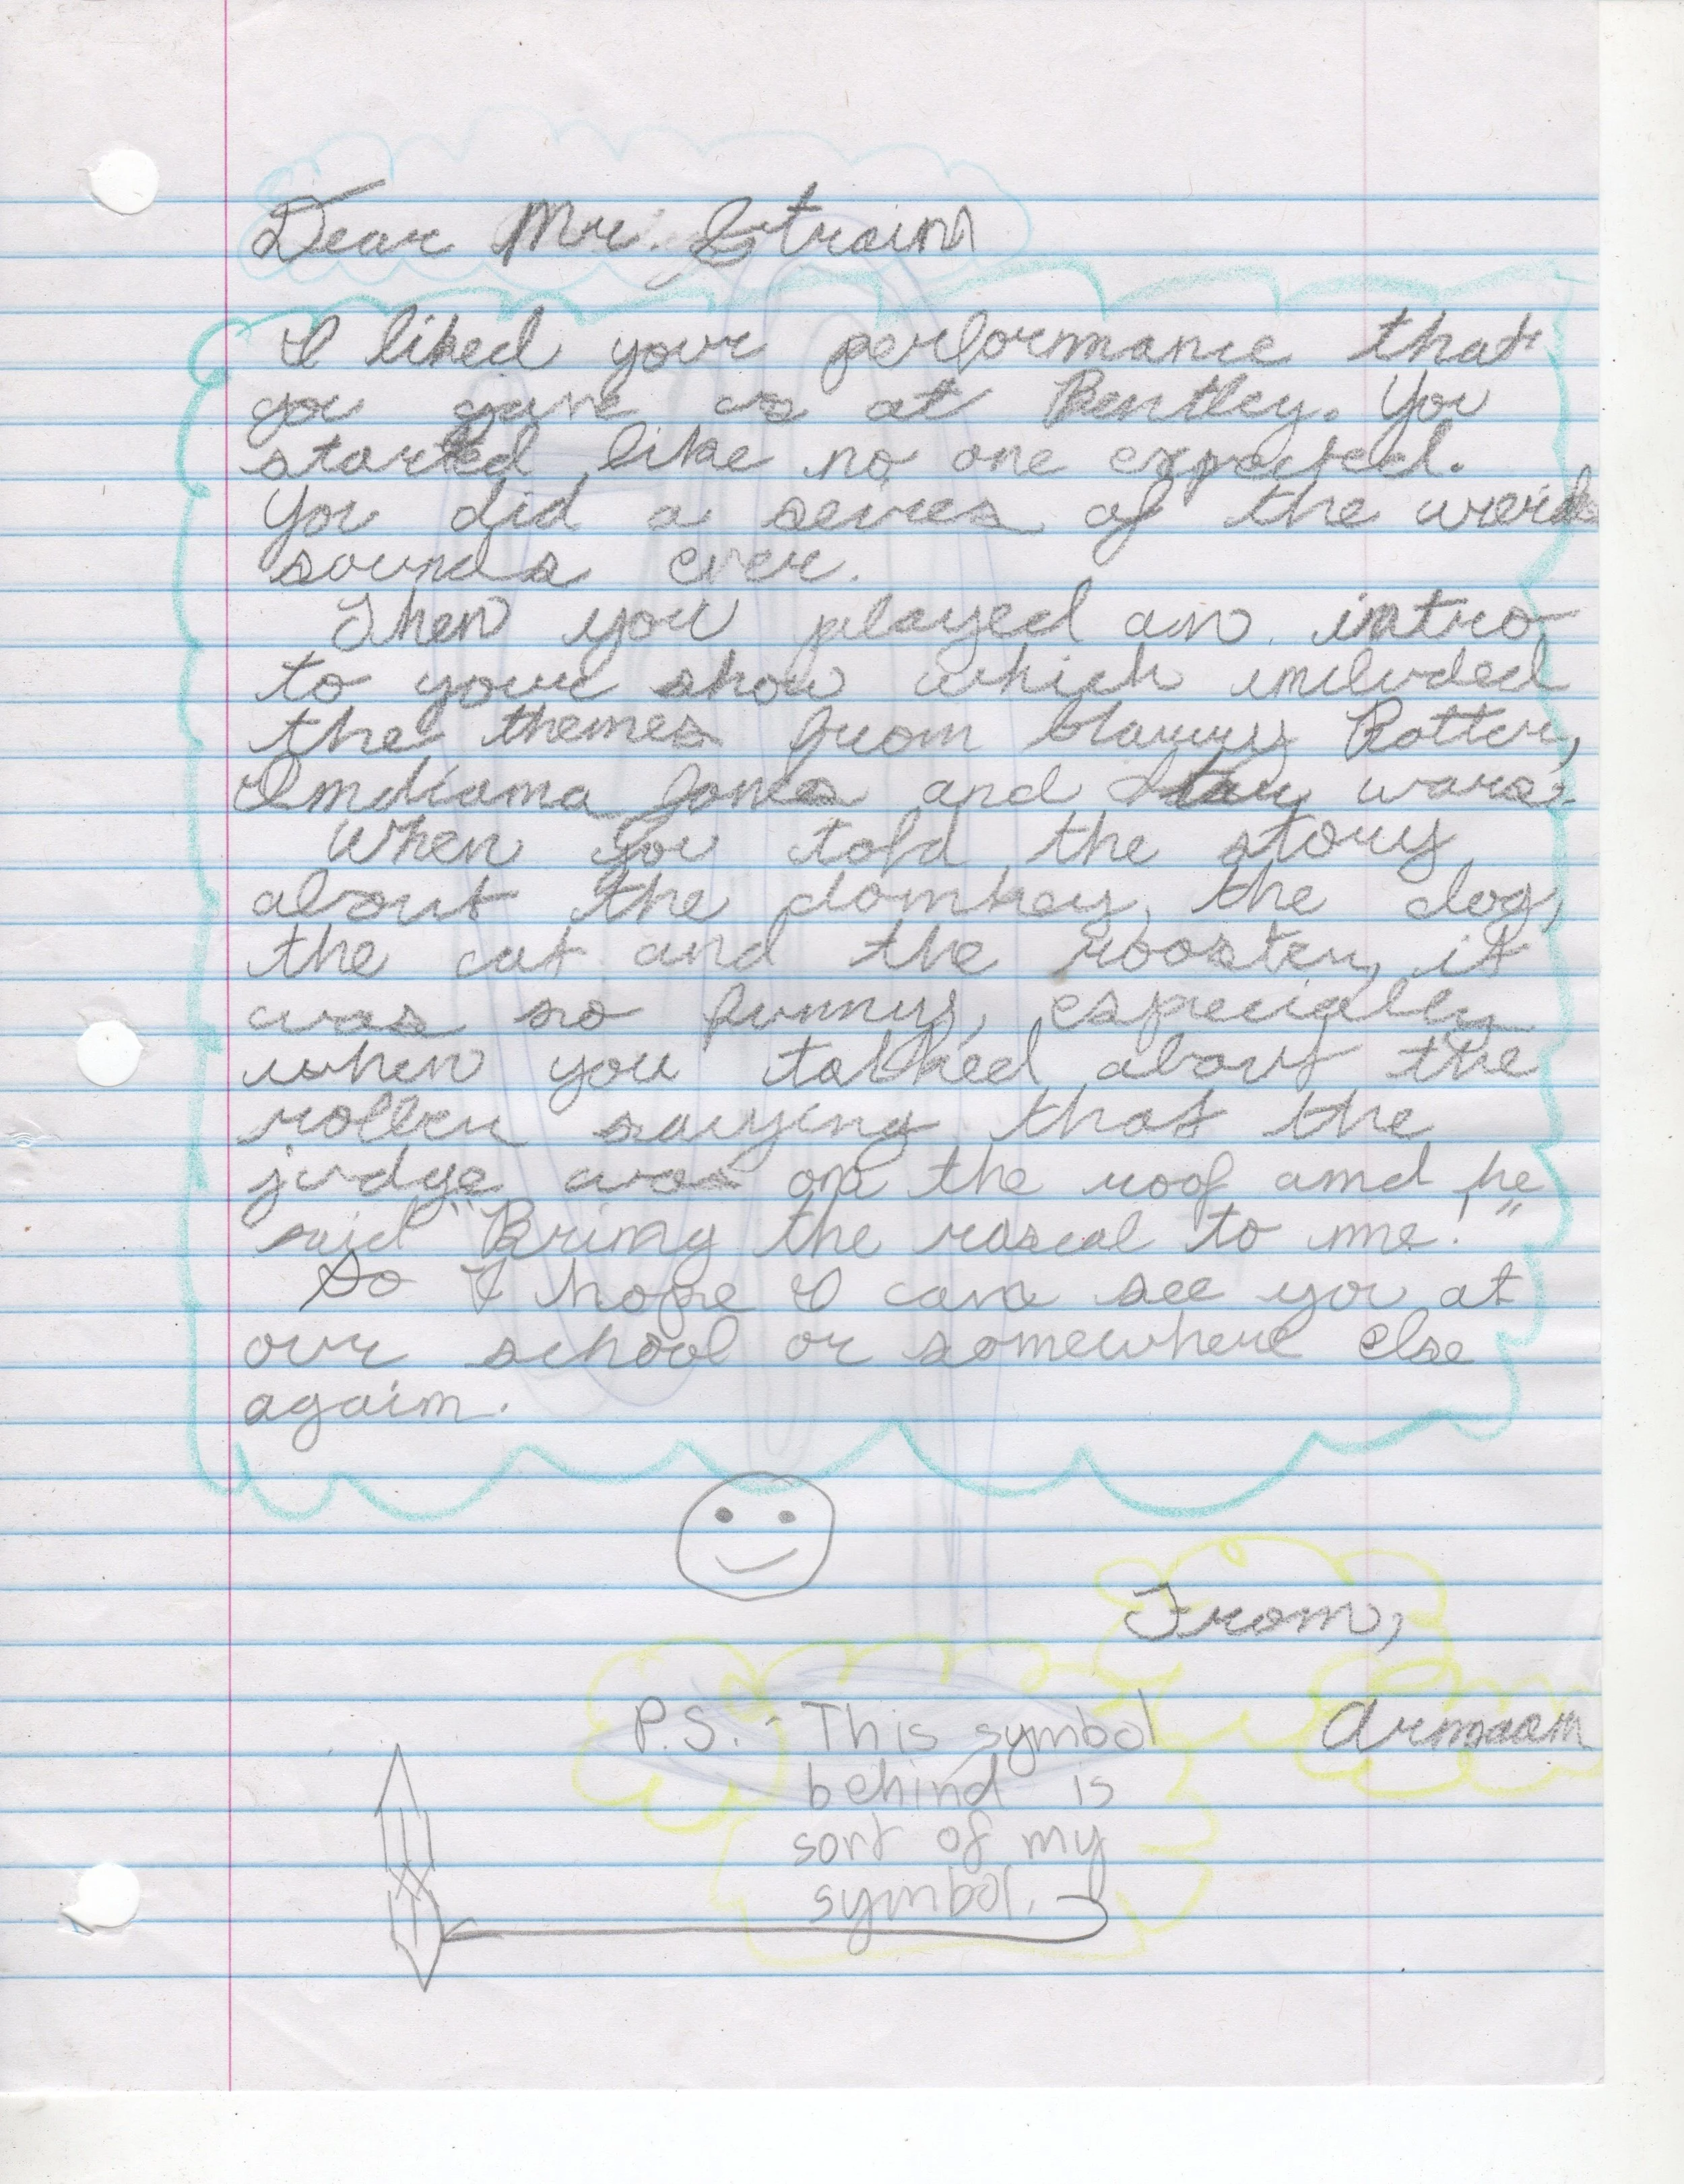 Dear Mr. Strain
I liked your performance that
you gave us at Bentley. You
started like no one expected.
You did a seires of the weird
sounds ever.
Then you played an intro
to your show which included
the themes from Harry Potter,
Indiana Jones and Star wars.
When you told the story
about the donkey, the dog,
the cat and the rooster, it
was so funny, especially
when you talked about the
roller saying that the
judge was on the roof and he
said "Bring the rascal to me!"
So I hope I can see you at
our school or somewhere else
again.
From,
Armaan
P.S. - This symbol
behind is
sort of my
symbol.